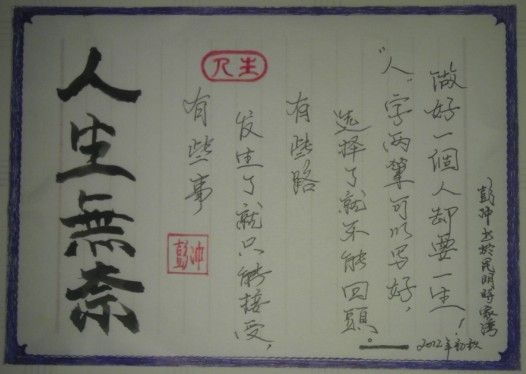 人生無奈
有些事
发生了就只能接受，
有些路
选择了就不能回頭。
“人”字两筆可以写好，
做好一個人却要一生！
彭冲书於昆明時家湾
2012年初秋
人生
彭冲